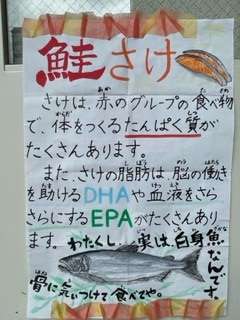 鮭さけ
さけは、赤のグループの食べ物
で、体をつくるたんぱく質が
たくさんあります。
また、さけの脂肪は脳の働き
を助けるDHAや血液をさら
さらにするEPAがたくさんあり
ます。わたくし、実は白身魚
なんです。
骨に気いつけて食べてや。